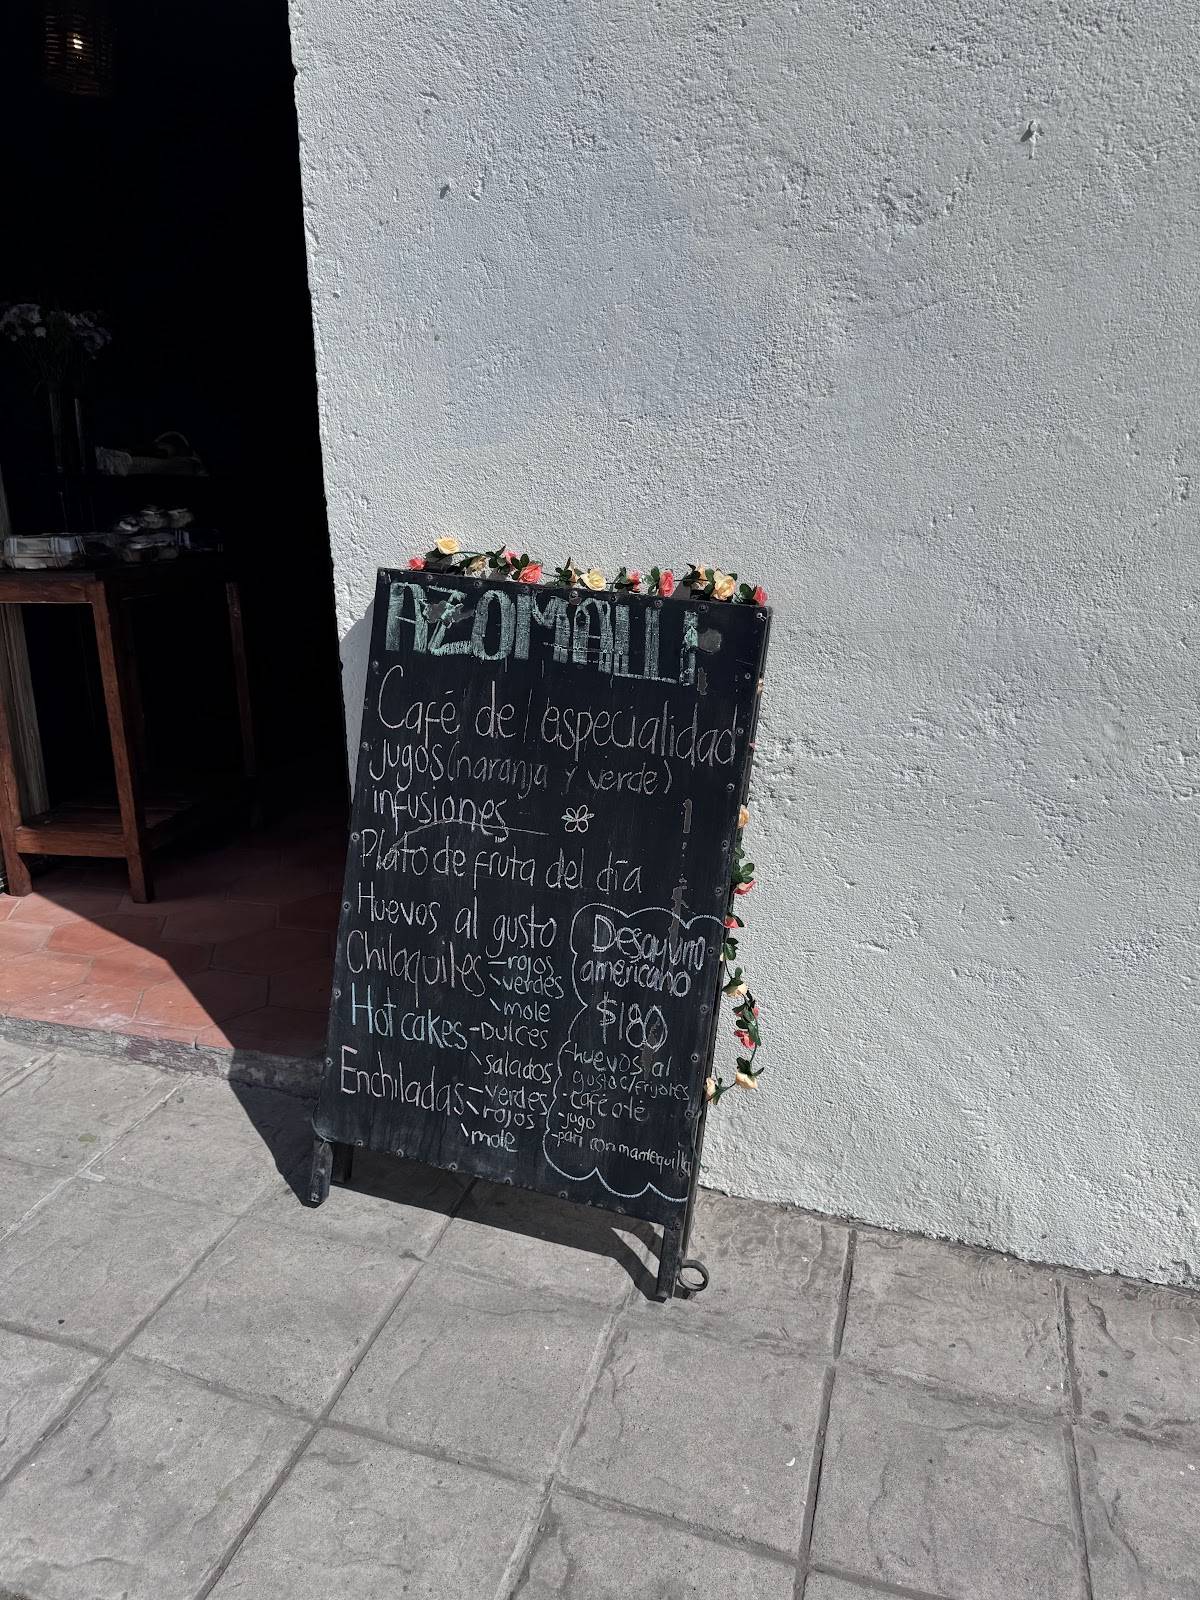 AZOMALLI
Café de especialidad
jugos (naranja y verde)
infusiones
Plato de fruta del día
Huevos al gusto
Chilaquiles - rojos
- verdes
- mole
Hot cakes - Dulces
- salados
Enchiladas - verdes
- rojos
- mole
Desayuno
americano
$180
- huevos al
gusto c/frijoles
- café o té
- jugo
- pan con mantequilla